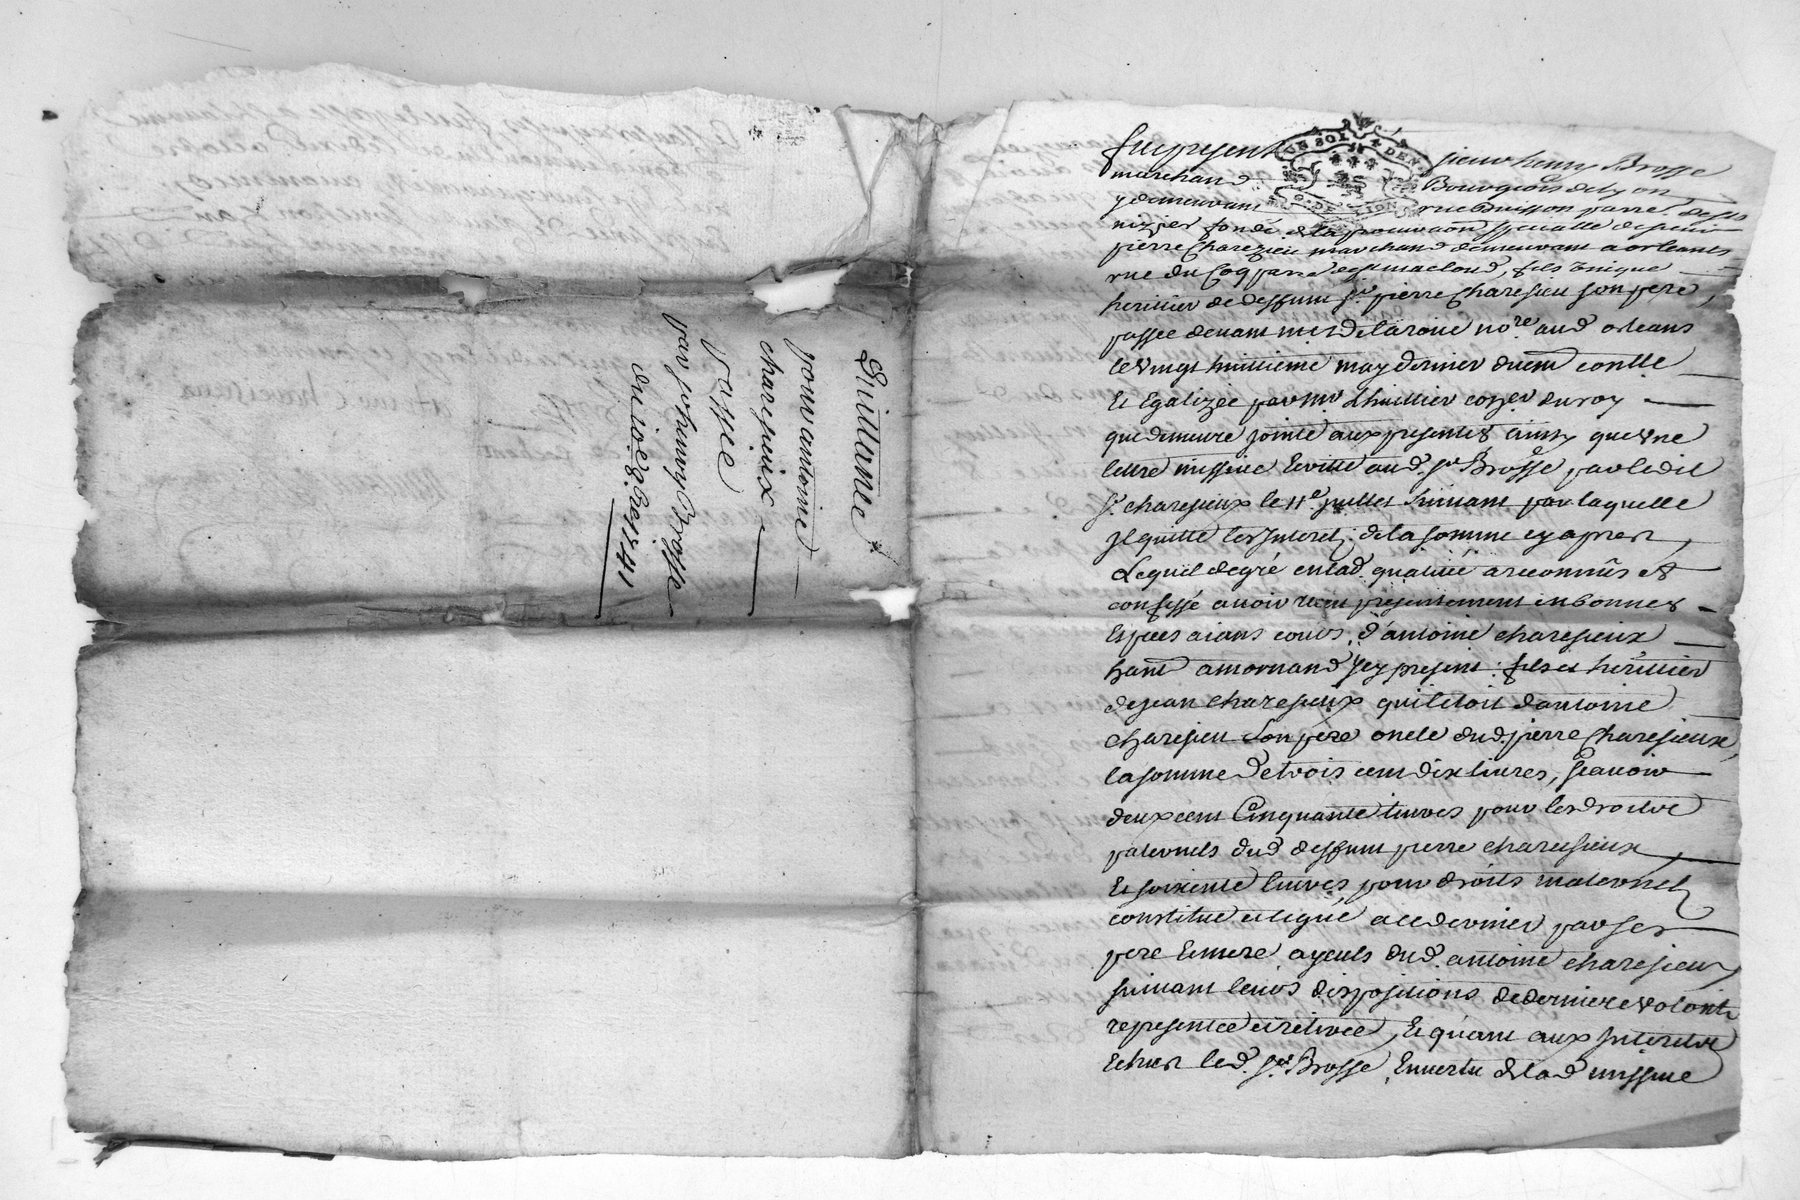 Quittance
pour antoine
charesieux
Passée
par sr henry Brosse
du io.e 8.bre 1741
fut present sieur henry Brosse
marchand Bourgeois de lyon
y demeurant rue Buisson parr.e de st
nizier fondé de la procuraôn specialle de sieur
pierre Charezieu marchand demeurant a orleans
rue du Coq parr.e de st macloud, fils unique
heritier de deffunt sr. pierre Charesieu son pere,
passée devant me delaroüe no.re aud. orleans
le vingt huitieme may dernier duem. contllé
Et Egalizée par mr. Lhuillier con.er du roy
qui demeure jointe aux presentes ainsy que vne
lettre missive Ecritte aud. sr Brosse par ledit
sr. charesieux le 11e juillet suivant par laquelle
jl quitte les jnterets de la somme cy apres,
Lequel de gré en lad. qualitté a reconnû et
confessé avoir receu presentement en bonnes
Especes aians cours, d'antoine charesieux
hant. a mornand jcy present: fils et heritier
de jean charesieux qui l'etoit d'antoine
charesieu son pere oncle dud. pierre Charesieux,
la somme de trois cent dix livres, scavoir
deux cent Cinquante livres pour les droits
paternels dud. deffunt pierre charesieux,
Et soixente livres pour droits maternels
constitué et legué a ce dernier par ses
pere Et mere ayeuls dud. antoine charesieux
suivant leurs dispositions de derniere volonté
representée et retirée, Et quant aux jnterets
Echus led. sr. Brosse, En vertu de lad. missive
UN SOL 4 DEN.
G. DE LION